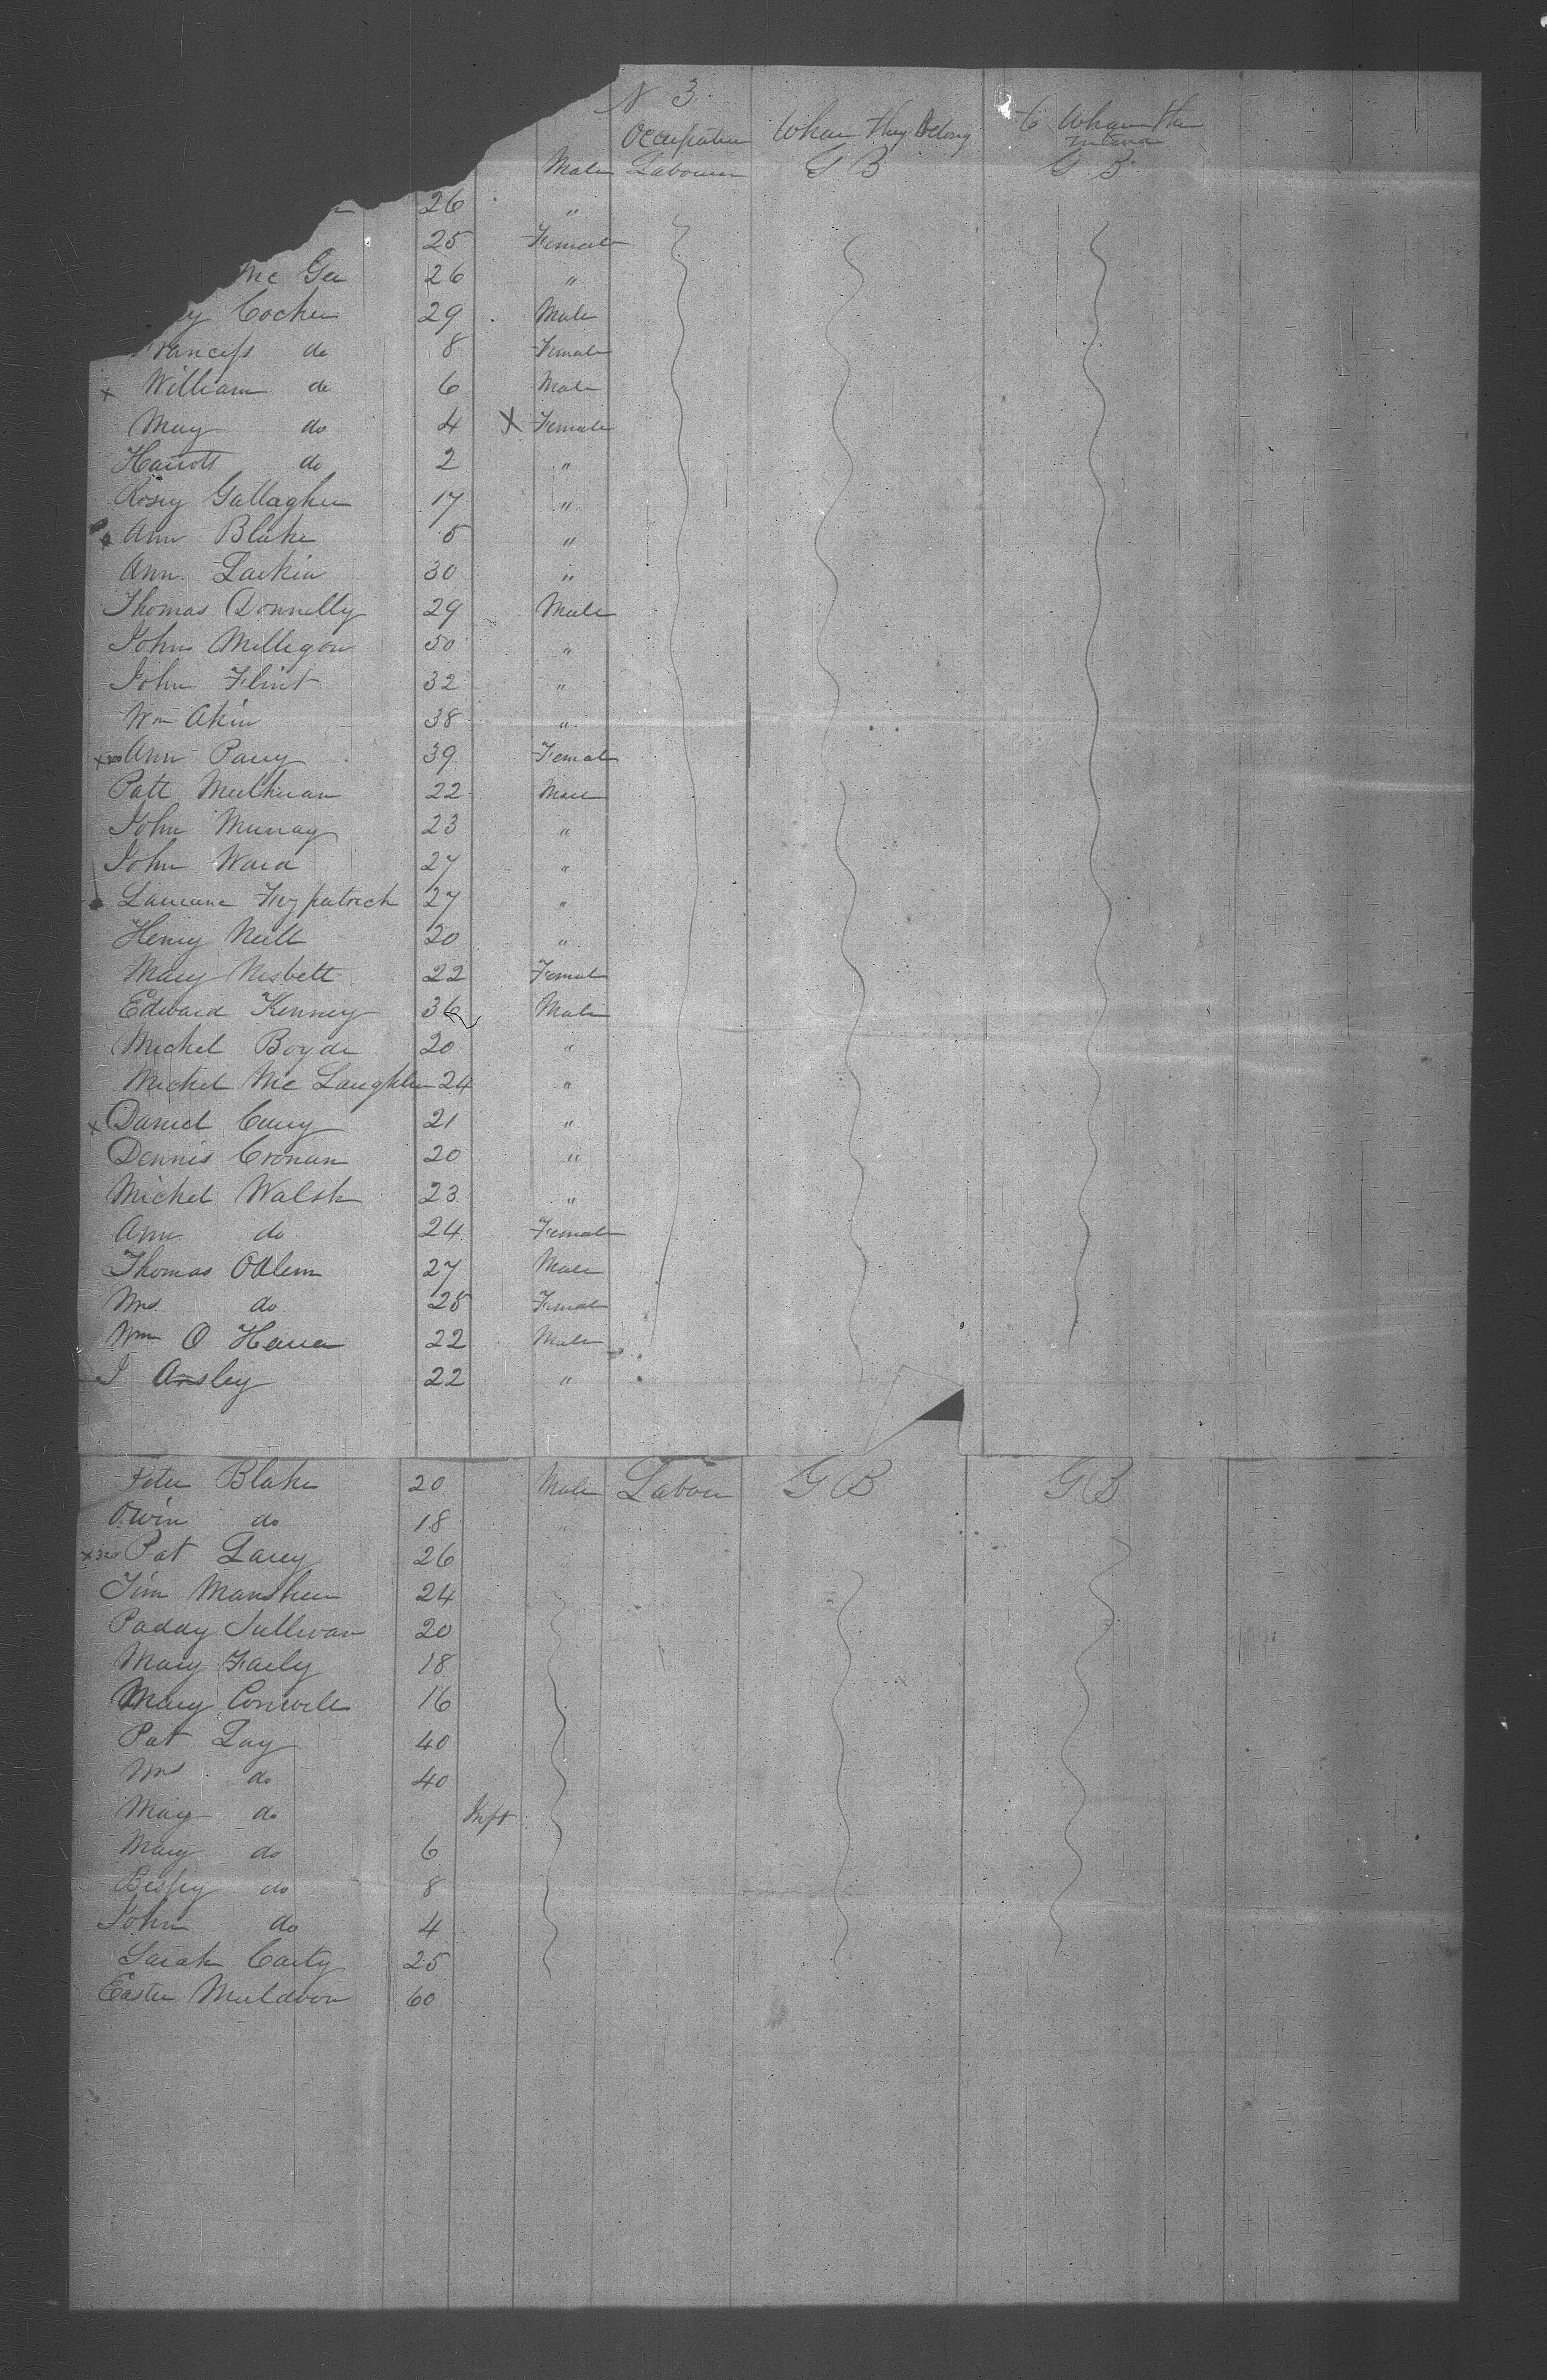 N 3
Occupation Whare they Belong To Whare the
intend
Male Labourer G B G B
26 "
25 Female
Mc Gee 26 "
Cochen 29 Male
Francess do 8 Female
x William do 6 Male
May do 4 X Female
Harrott do 2 "
Rosey Gallagher 17 "
Ann Blake 5 "
Ann Larkin 30 "
Thomas Donnelly 29 Male
John Milligon 50 "
John Flint 32 "
Wm Akin 38 "
x Ann Parry 39 Female
Patt Mulhuran 22 Male
John Murray 23 "
John Ward 27 "
Laurance Fitzpatrick 27 "
Henry Neill 20 "
Mary Nesbett 22 Female
Edward Kenney 36 Male
Michel Boyde 20 "
Michel Mc Laughlin 24 "
x Daniel Carry 21 "
Dennis Cronan 20 "
Michel Walsh 23 "
Ann do 24 Female
Thomas Odlem 27 Male
Mrs do 25 Female
Wm O Harra 22 Male
J Ansley 22 "
Peter Blake 20 Male Labour G B G B
Owin do 18 "
x 320 Pat Larey 26
Tim Manshun 24
Paddy Sullivan 20
Mary Farly 18
Mary Conwell 16
Pat Lay 40
Mrs do 40
May do Inft
Mary do 6
Bessey do 8
John do 4
Sarah Carty 25
Easter Muldoon 60